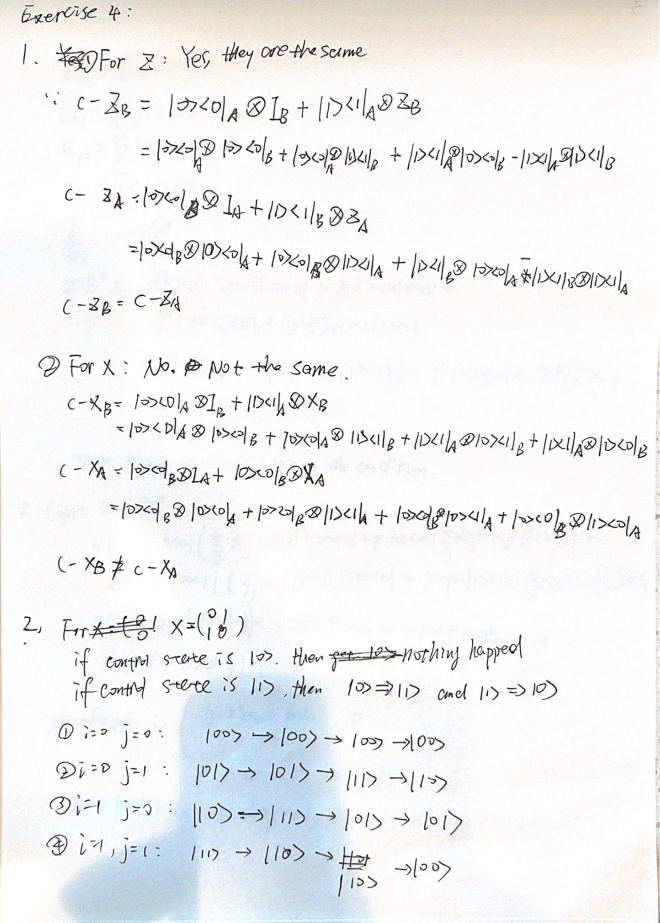 Exercise 4:
1. ① For Z: Yes, they are the same
∵ C-Z_B = |0><0|_A ⊗ I_B + |1><1|_A ⊗ Z_B
= |0><0|_A ⊗ |0><0|_B + |0><0|_A ⊗ |1><1|_B + |1><1|_A ⊗ |0><0|_B - |1><1|_A ⊗ |1><1|_B
C- Z_A = |0><0|_B ⊗ I_A + |1><1|_B ⊗ Z_A
= |0><0|_B ⊗ |0><0|_A + |0><0|_B ⊗ |1><1|_A + |1><1|_B ⊗ |0><0|_A - |1><1|_B ⊗ |1><1|_A
C-Z_B = C-Z_A
② For X: No. Not the same.
C-X_B = |0><0|_A ⊗ I_B + |1><1|_A ⊗ X_B
= |0><0|_A ⊗ |0><0|_B + |0><0|_A ⊗ |1><1|_B + |1><1|_A ⊗ |0><1|_B + |1><1|_A ⊗ |1><0|_B
C-X_A = |0><0|_B ⊗ I_A + |0><0|_B ⊗ X_A
= |0><0|_B ⊗ |0><0|_A + |0><0|_B ⊗ |1><1|_A + |0><0|_B ⊗ |0><1|_A + |0><0|_B ⊗ |1><0|_A
C-X_B ≠ C-X_A
2. For X = (0 1
1 0)
if control state is |0>. then nothing happed
if control state is |1>, then |0> => |1> and |1> => |0>
① i=0 j=0: |00> → |00> → |00> → |00>
② i=0 j=1: |01> → |01> → |11> → |10>
③ i=1 j=0: |10> → |11> → |01> → |01>
④ i=1, j=1: |11> → |10> → |10> → |00>